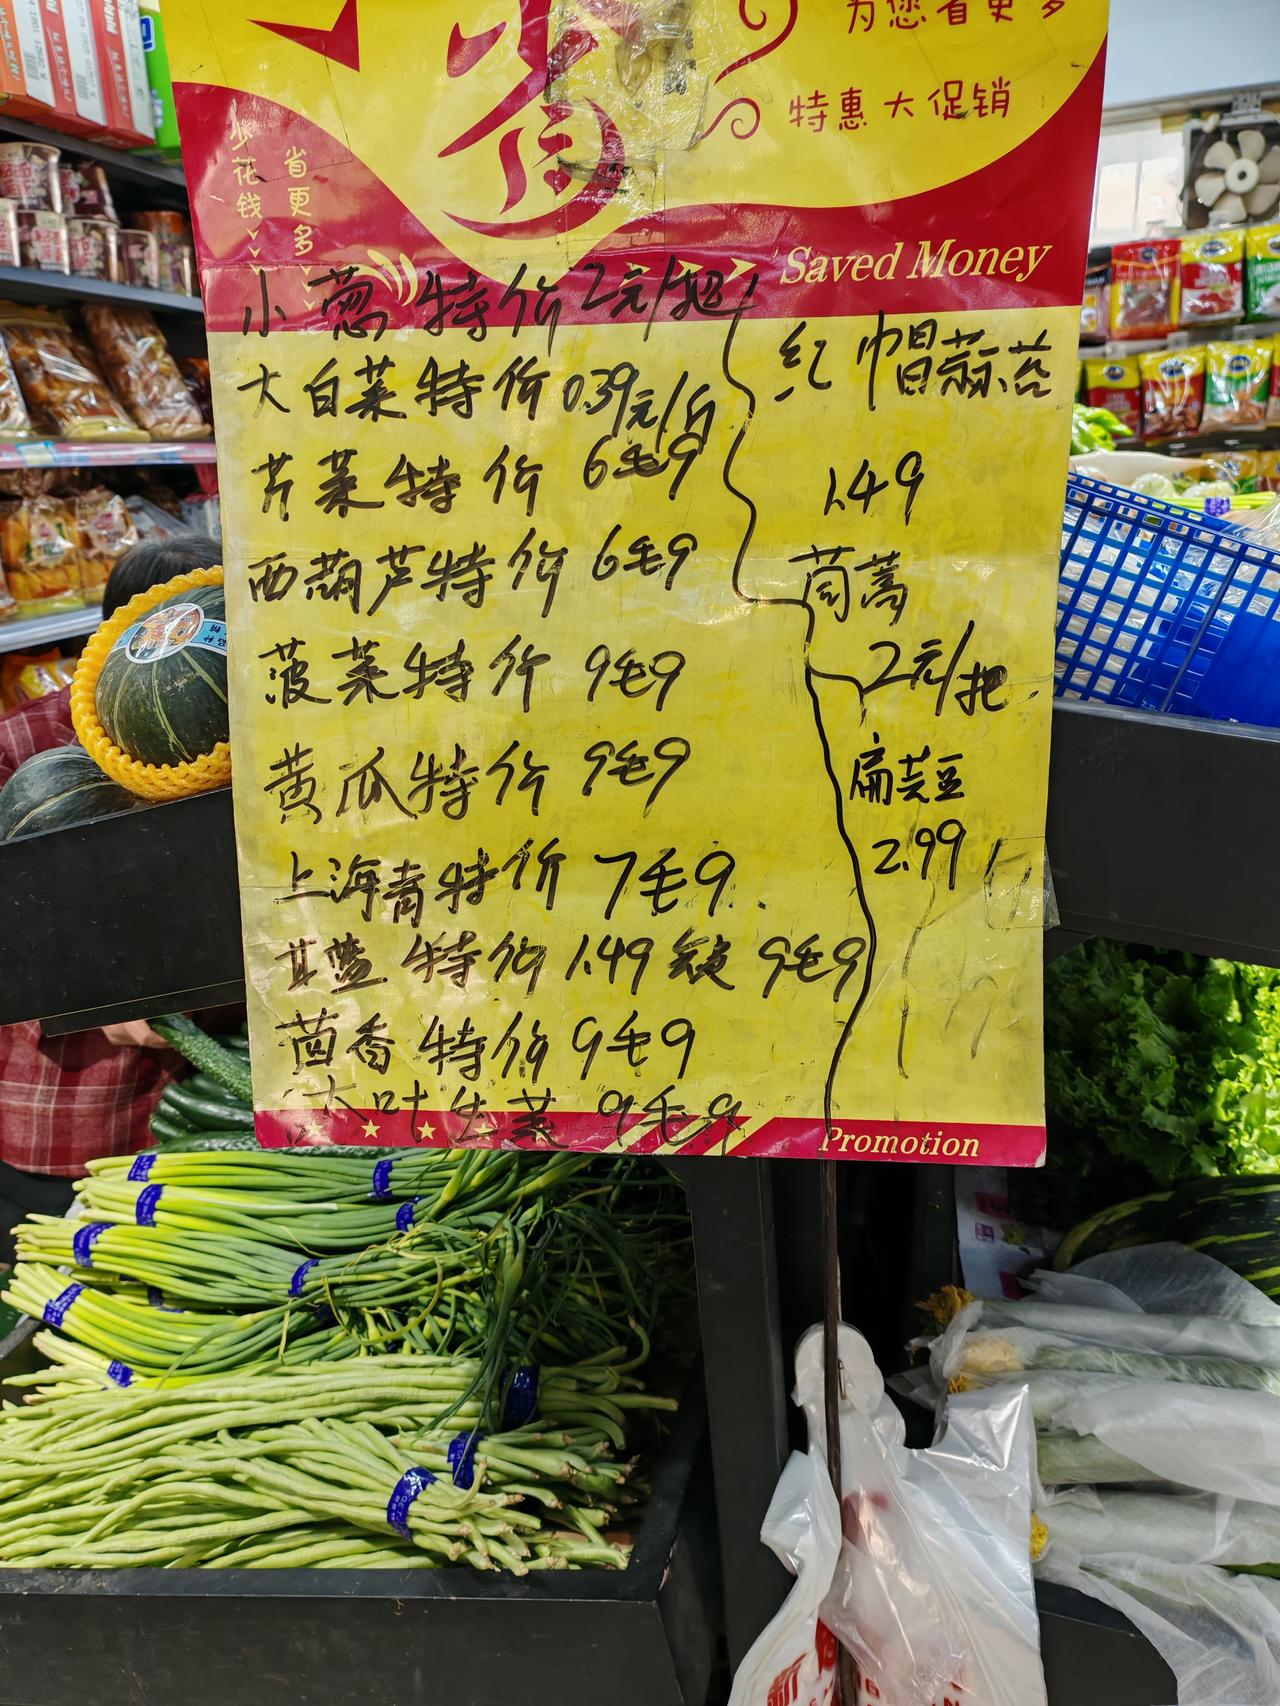 为您省更多
特惠大促销
省
少花钱
省更多
Saved Money
小葱特价2元/把
大白菜特价0.39元/斤
芹菜特价 6毛9
西葫芦特价 6毛9
菠菜特价 9毛9
黄瓜特价 9毛9
上海青特价 7毛9
特价 1.49 9毛9
茴香特价 9毛9
大叶生菜 9毛9
红帽蒜苔
1.49
茼蒿
2元/把
扁芸豆
2.99
Promotion